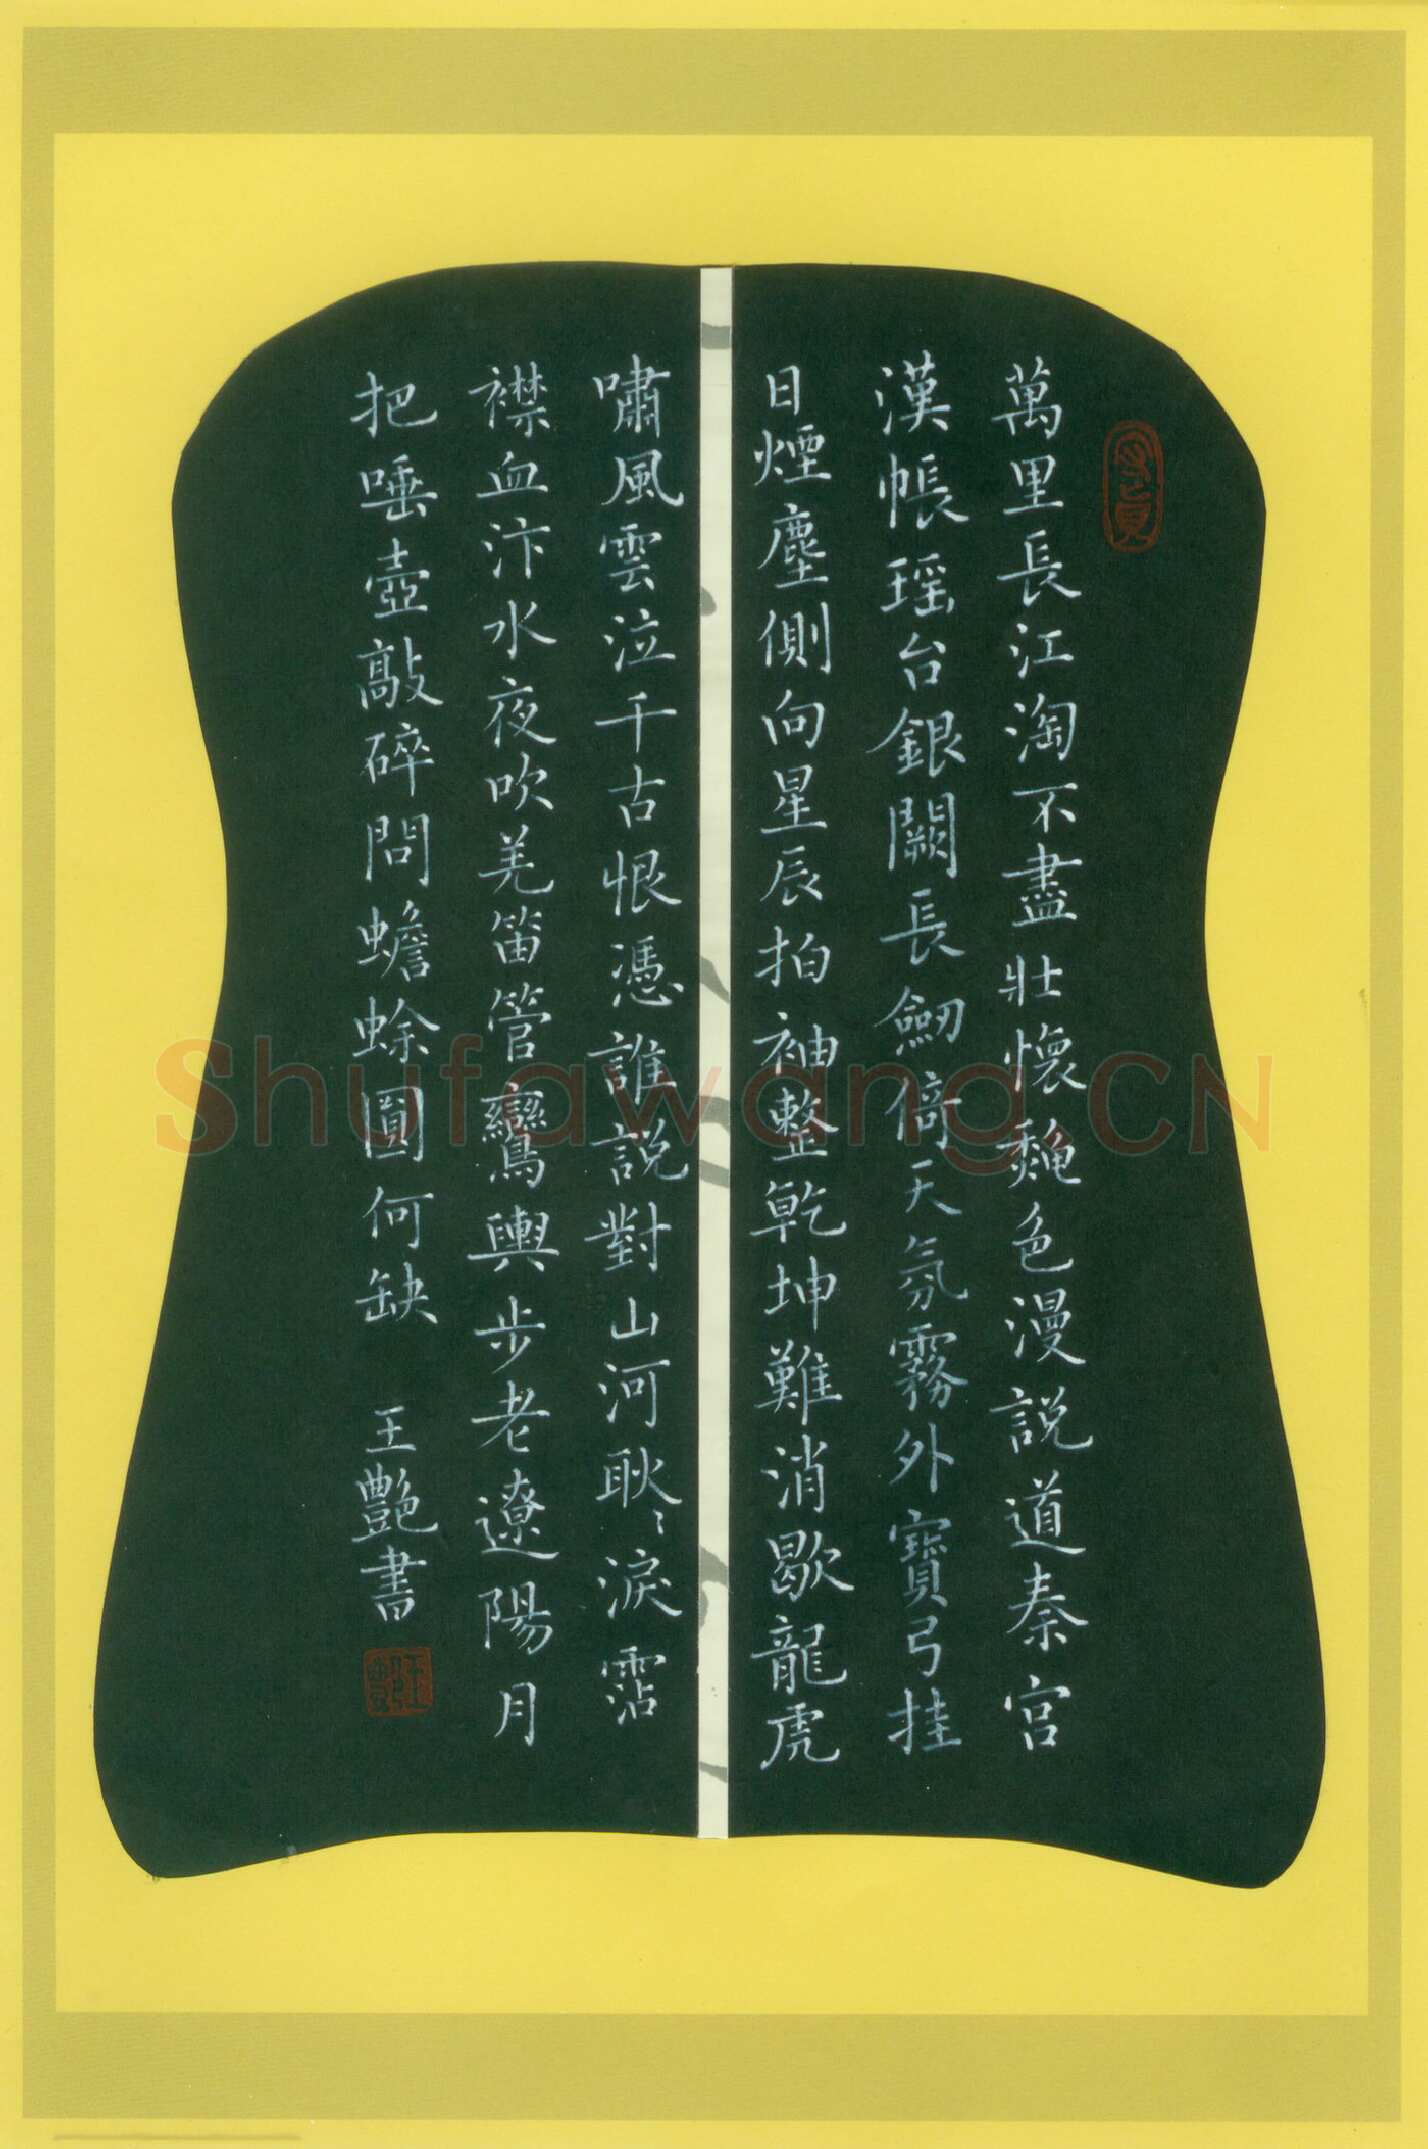 萬里長江淘不盡壯懷穐色漫説道秦宮
漢帳瑶台銀闕長劒倚天氛霧外寶弓挂
日煙塵側向星辰拍袖整乾坤難消歇龍虎
嘯風雲泣千古恨憑誰説對山河耿〻淚霑
襟血汴水夜吹羌笛管鸞輿步老遼陽月
把唾壺敲碎問蟾蜍圓何缺 王艷書
Shufawang.CN